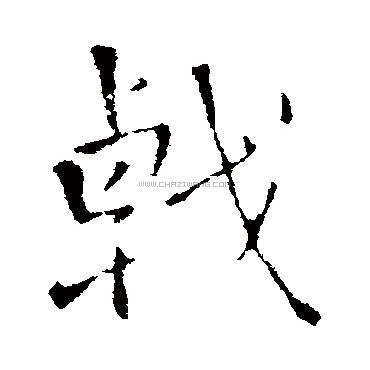 戟
WWW.CHAZIWANG.COM